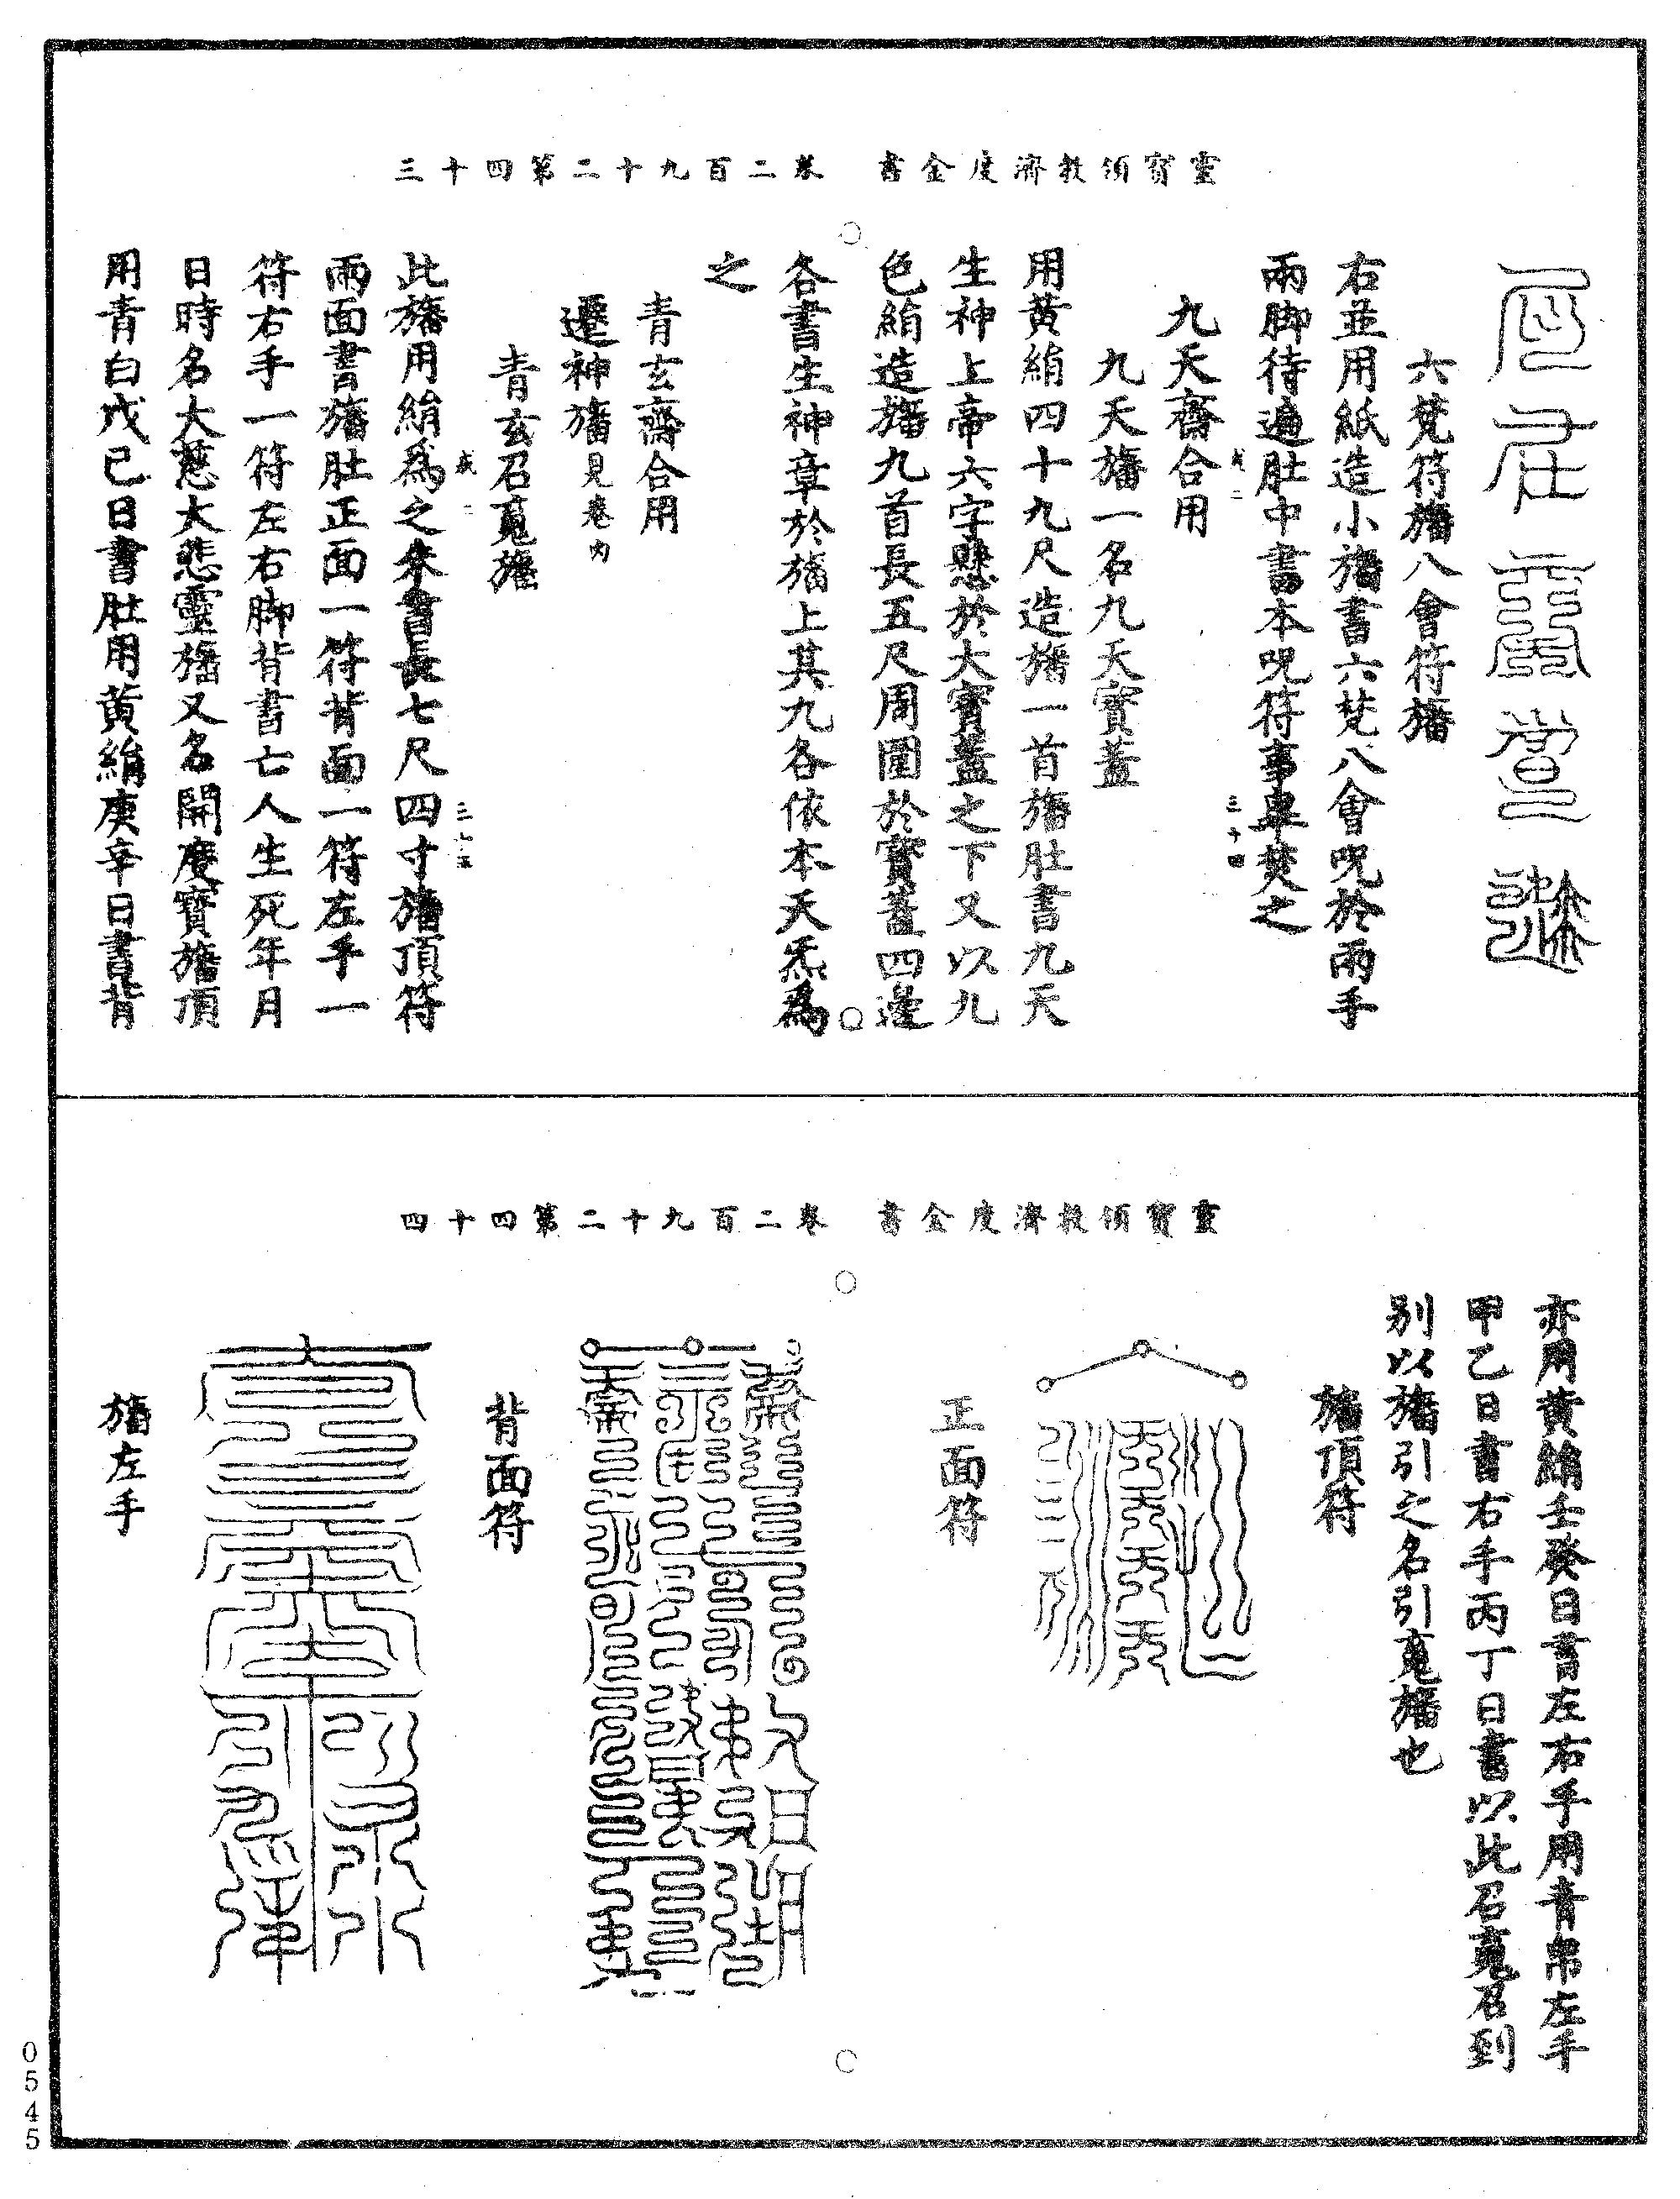 靈寶領教濟度金書　卷二百九十二第四十三
六梵符旛八會符旛
右並用紙造小旛書六梵八會呪於兩手
兩脚待遍肚中書本呪符事畢焚之
三十四
九天齋合用
九天旛一名九天寶蓋
用黄絹四十九尺造旛一首旛肚書九天
生神上帝六字懸於大寶蓋之下又以九
色絹造旛九首長五尺周圍於寶蓋四邊
各書生神章於旛上其九各依本天炁爲
之
青玄齋合用
遷神旛見卷内
青玄召䰟旛
三十五
此旛用絹爲之朱書長七尺四寸旛頂符
兩面書旛肚正面一符背面一符左手一
符右手一符左右脚背書亡人生死年月
日時名大慈大悲靈旛又名開度寶旛頂
用青白戊己日書肚用黄絹庚辛日書背
靈寶領教濟度金書　卷二百九十二第四十四
亦用黄絹壬癸日書左右手用青帛左手
甲乙日書右手丙丁日書以此召䰟召到
别以旛引之名引䰟旛也
旛頂符
正面符
背面符
旛左手
0545